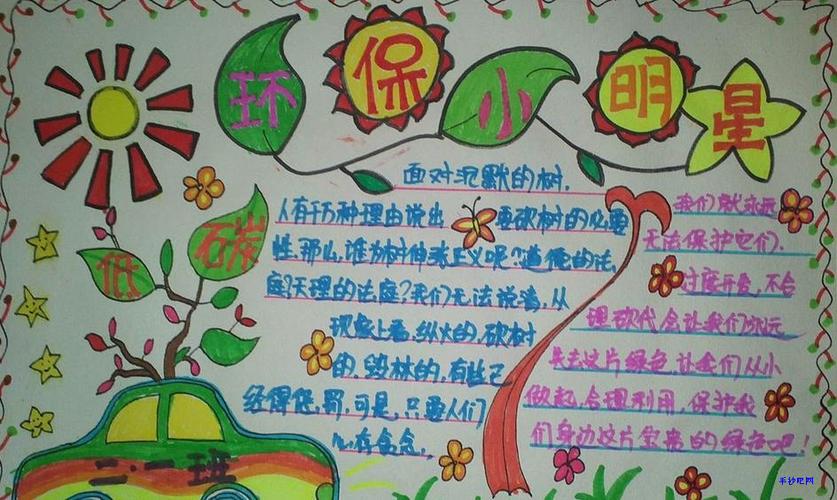 环保小明星
低碳
面对沉默的树,
人有千万种理由说出要砍树的必要
性,那么,谁为树伸张正义呢?道德的法
庭?天理的法庭?我们无法说清,从
现象上看,纵火的,砍树
的,毁林的,有些已
经得惩罚,可是,只要人们
心存贪念,
我们就永远
无法保护它们.
过度开垦,不合
理砍伐会让我们永远
失去这片绿色,让我们从小
做起,合理利用,保护我
们身边这片宝贵的绿色吧!
二·一班
手抄吧网